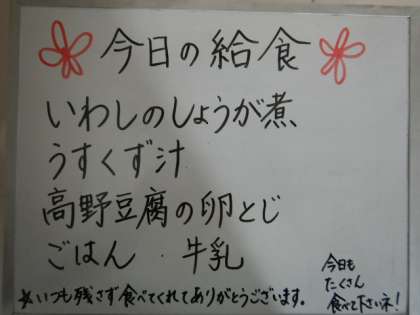 今日の給食
いわしのしょうが煮
うすくず汁
高野豆腐の卵とじ
ごはん ・牛乳
今日も
たくさん
食べて下さいネ!
*いつも残さず食べてくれてありがとうございます。